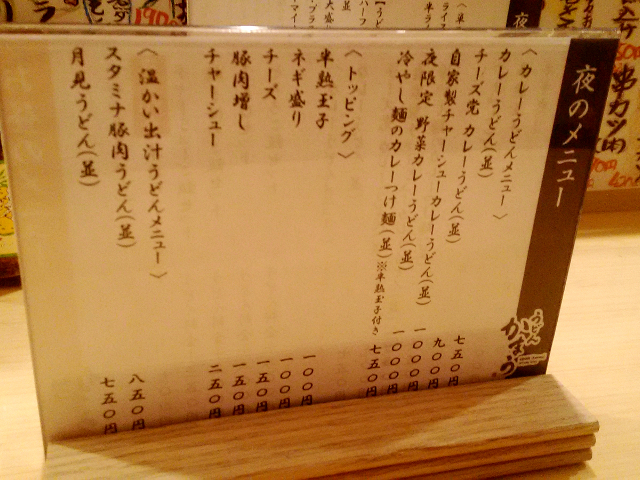 夜のメニュー
〈カレーうどんメニュー〉
カレーうどん(並) 七五〇円
チーズ党 カレーうどん(並) 九〇〇円
自家製チャーシューカレーうどん(並) 一〇〇〇円
夜限定 野菜カレーうどん(並) 一〇〇〇円
冷やし麺のカレーつけ麺(並)※半熟玉子付き 七五〇円
〈トッピング〉
半熟玉子 一〇〇円
ネギ盛り 一〇〇円
チーズ 一五〇円
豚肉増し 一五〇円
チャーシュー 二五〇円
〈温かい出汁うどんメニュー〉
スタミナ豚肉うどん(並) 八五〇円
月見うどん(並) 七五〇円
うどん
かまう
串カツ(肉)
190円
夜